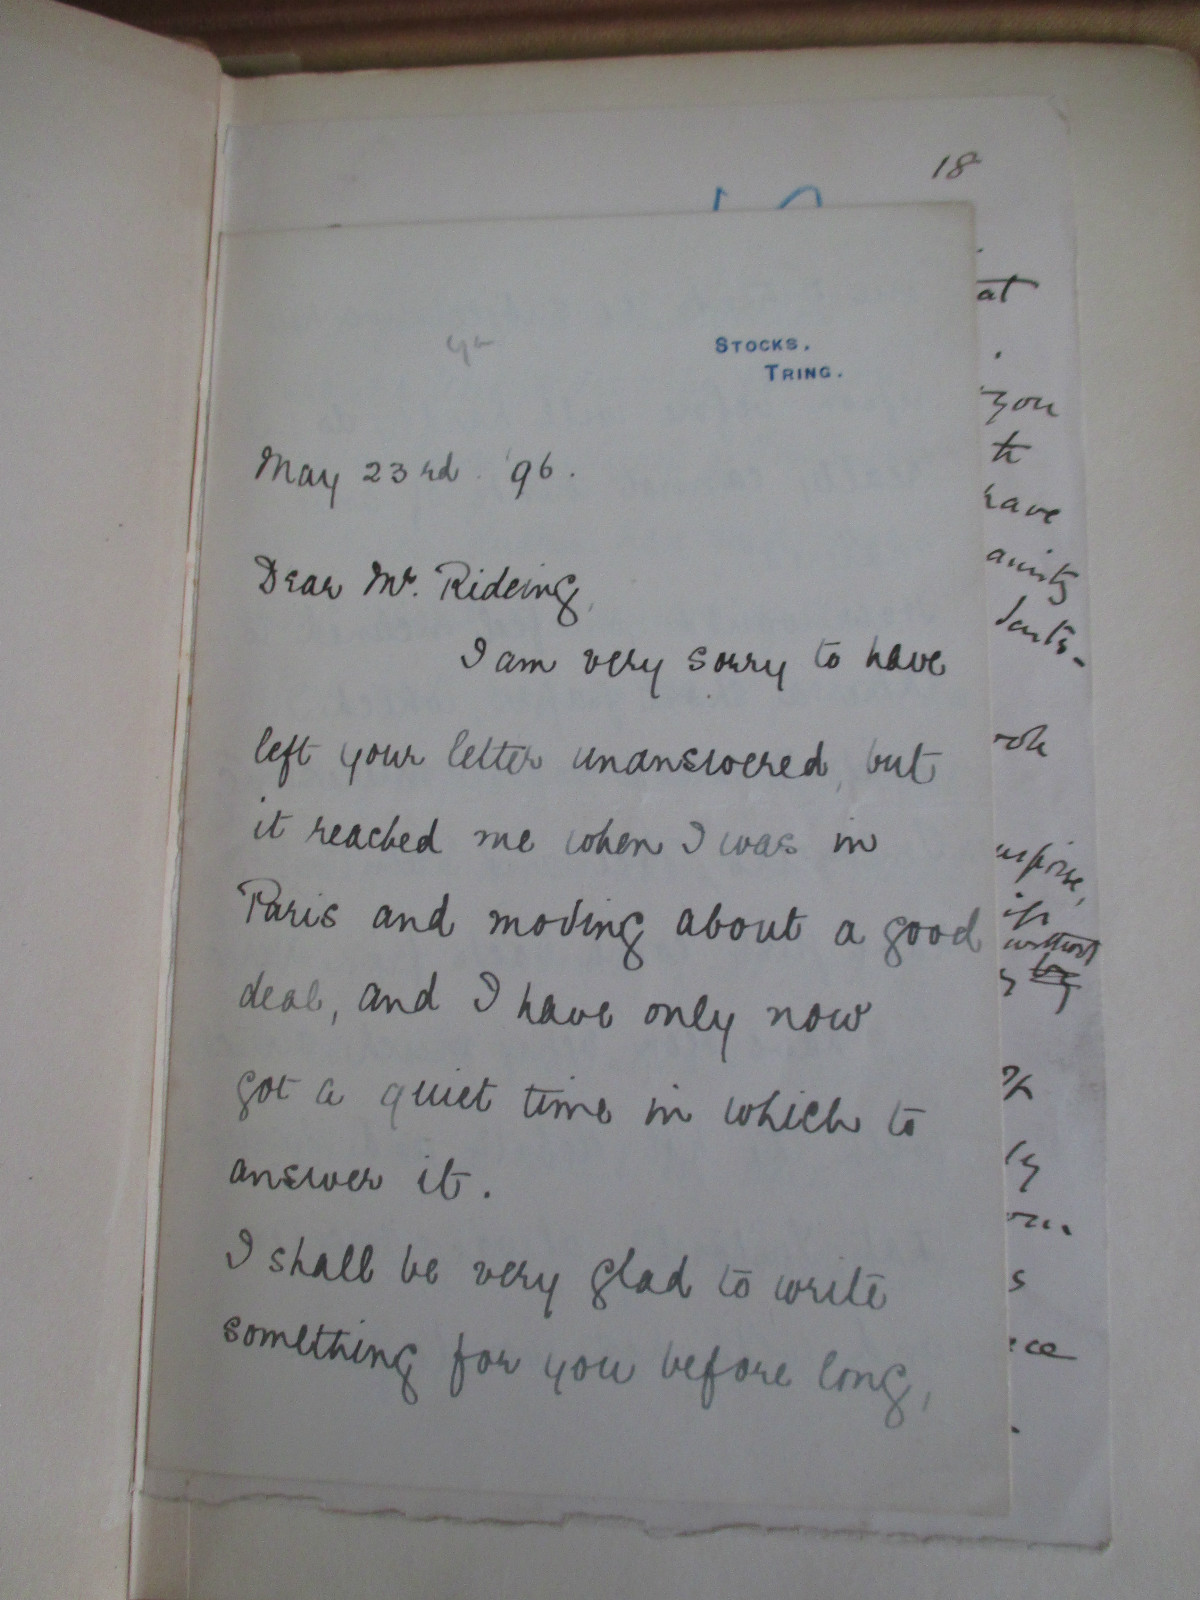 18
at
STOCKS.
TRING.
you
th
have
May 23rd. '96.
Dear Mr. Rideing,
I am very sorry to have
left your letter unanswered, but
it reached me when I was in
Paris and moving about a good
deal, and I have only now
got a quiet time in which to
answer it.
I shall be very glad to write
something for you before long,